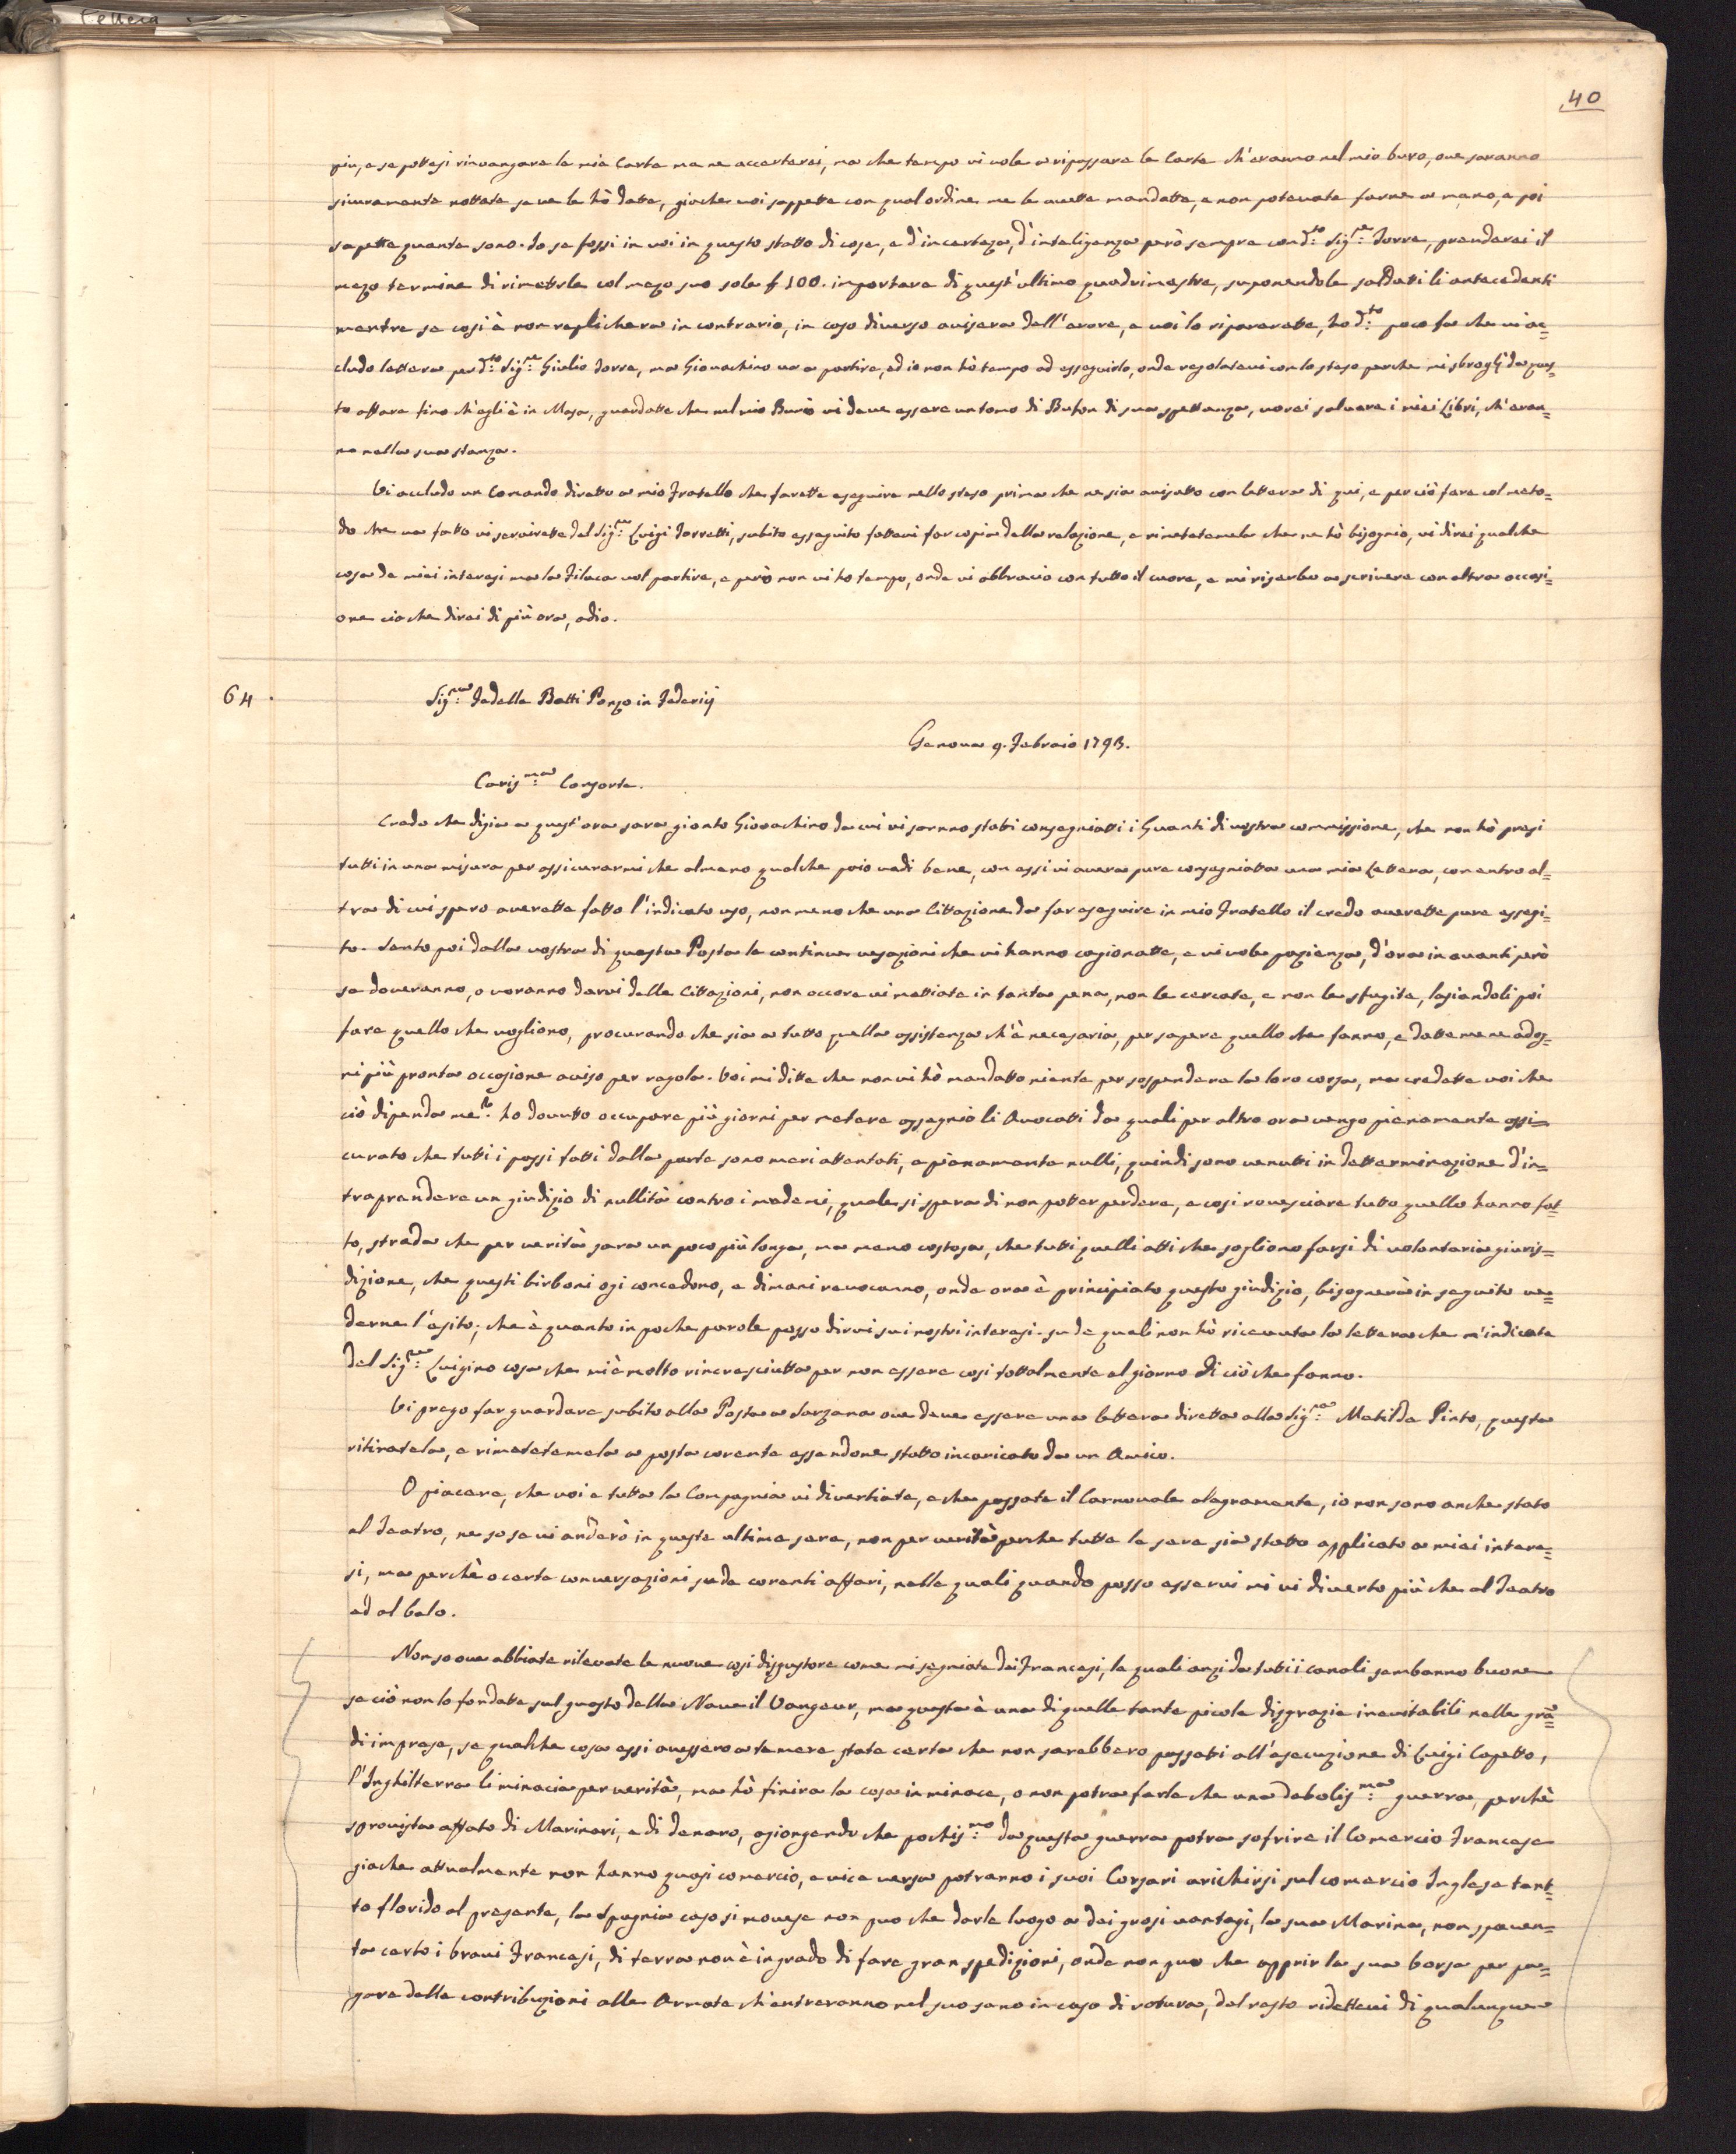 Lettera
40
piu, e se potessi rinvangare le mie Carte me ne accerterei, ma che tempo vi vole a ripassare le Carte ch'eranno nel mio buro, ove saranno
sicuramente nottate se ve le hò date, gioche voi sappette con qual ordine me le avette mandatte, e non potevate farne a meno, e poi
sapette quante sono. Io se fossi in voi in questo statto di cose, e d'incerteza, d'inteligenza però sempre con d:to Sig:re Torre, prenderei il
mezo termine di rimetterle col mezo suo sole £ 100. importare di quest'ultimo quadrimestre, suponendole saldatti li antecedenti
mentre se cosi è non replichera in contrario, in caso diverso avisera dell'erore, e voi lo riparerette, ho d:to poco fa che vi ac=
cludo lettera per d:to Sig:re Giulio Torre, ma Gioachino va a partire, ed io non hò tempo ad esseguirlo, onde regolatevi con lo steso perche mi sbroglj da ques=
to affare fino ch'egli è in Masa, guardatte che nel mio Burò vi deve essere un tomo di Bufon di sua spettanza, vorei salvare i miei Libri, ch'eran=
no nella sua stanza.
Vi accludo un Comando diretto a mio Fratello che farette eseguire nello steso prima che ne sia avisatto con lettera di qui, e per ciò fare col meto=
do che va fatto vi servirette del Sig:re Luigi Torretti, subito esseguito fattevi far copia della relazione, e rimetetemela che ne hò bisognio, vi direi qualche
cosa de miei interesi ma la Filuca vol partire, e però non vi ho tempo, onde vi abbracio con tutto il cuore, e mi riserbo a scrivere con altra occasi=
one cio che direi di più ora, adio.
64.
Sig:ra Fedelle Betti Ponzo in Federicj
Genova 9. Febraio 1793.
Caris:ma Consorte.
Credo che digia a quest'ora sara gionto Gioachino da cui vi sarnno stati consegniatti i Guanti di vostra commissione, che non hò presi
tutti in una misura per assicurarmi che almeno qualche paio vadi bene, con essi vi avera pure consegniatta una mia Lettera, con entro al=
tra di cui spero averette fatto l'indicato uso, non meno che una Cittazione da far eseguire in mio Fratello il credo averette pure essegi=
to. Sento poi dalla vostra di questa Posta le continue vesazioni che vi hanno cagionatte, e vi vole pazienza, d'ora in avanti però
se doveranno, o voranno darvi delle Cittazioni, non occore vi mettiate in tanta pena, non le cercate, e non le sfugite, lasiandoli poi
fare quello che vogliono, procurando che sia a tutto quella assistenza ch'è necesaria, per sapere quello che fanno, e dattemene ad og=
ni più pronta occasione aviso per regola. Voi mi ditte che non vi hò mandatto niente per sospendere la loro corsa, ma credette voi che
ciò dipenda me? ho dovutto occupare più giorni per metere assegnio li Avocatti da quali per altro ora vengo pienamente assi=
curato che tutti i passi fatti dalla parte sono meri attentati, e pienamente nulli, quindi sono venutti in detterminazione d'in=
traprendere un giudizio di nullità contro i medemi, quale si spera di non potter perdere, e cosi rovesciare tutto quello hanno fat=
to, strada che per verità sara un poco più longa, ma meno costosa, che tutti quelli atti che sogliono farsi di volontaria giuris=
dizione, che questi birboni ogi concedono, e dimani revocanno, onde ora è principiato questo giudizio, bisognerà in seguito ve=
derne l'esito; che è quanto in poche parole posso dirvi sui nostri interesi. su de quali non hò ricevuta la lettera che m'indicate
del Sig:re Luigino cosa che mi è molto rincresciutta per non essere cosi tottalmente al giorno di ciò che fanno.
Vi prego far guardare subito alla Posta a Sarzana ove deve essere una lettera diretta alla Sig:ra Matilda Pinto, questa
ritiratela, e rimetetemela a posta corente essendone statto incaricato da un Amico.
O piacere, che voi e tutta la Compagnia vi divertiate, e che passate il Carnovale alegramente, io non sono anche stato
al Teatro, ne so se vi anderò in queste ultime sere, non per verità perche tutte le sere sia statto applicato a miei intere=
si, ma perchè o certe conversazioni su de corenti affari, nelle quali quando posso esservi mi vi diverto più che al Teatro
ed al balo.
Non so ove abbiate rilevate le nuove cosi disgustore come mi segniate dei Francesi, le quali anzi da tutti i canali sembanno buone
se ciò non lo fondatte sul guasto della Nave il Vangeur, ma questa è una di quelle tante picole disgrazie inevitabili nelle grã=
di imprese, se qualche cosa essi avessero a temere state certa che non sarebbero passati all'esecuzione di Luigi Capetto,
l'Inghilterra li minacia per verità, ma hò finira la cosa in minace, o non potra farle che una debolis:ma guerra, perchè
sprovista affato di Marinari, e di denaro, agiongendo che pochis:mo da questa guerra potra sofrire il Comercio Francese
giache attualmente non hanno quasi comercio, e vice versa potranno i suoi Corsari arichirsi sul comercio Inglese tant=
to florido al presente, la Spagnia caso si movese non puo che darle luogo a dei grosi vantagi, la sua Marina, non spaven=
ta certo i bravi Francesi, di terra non è in grado di fare gran spedizioni, onde non puo che apprir la sua borsa per pa=
gare delle contribuzioni alle Armate ch'entreranno nel suo seno in caso di rotura, del resto ridettevi di qualunque